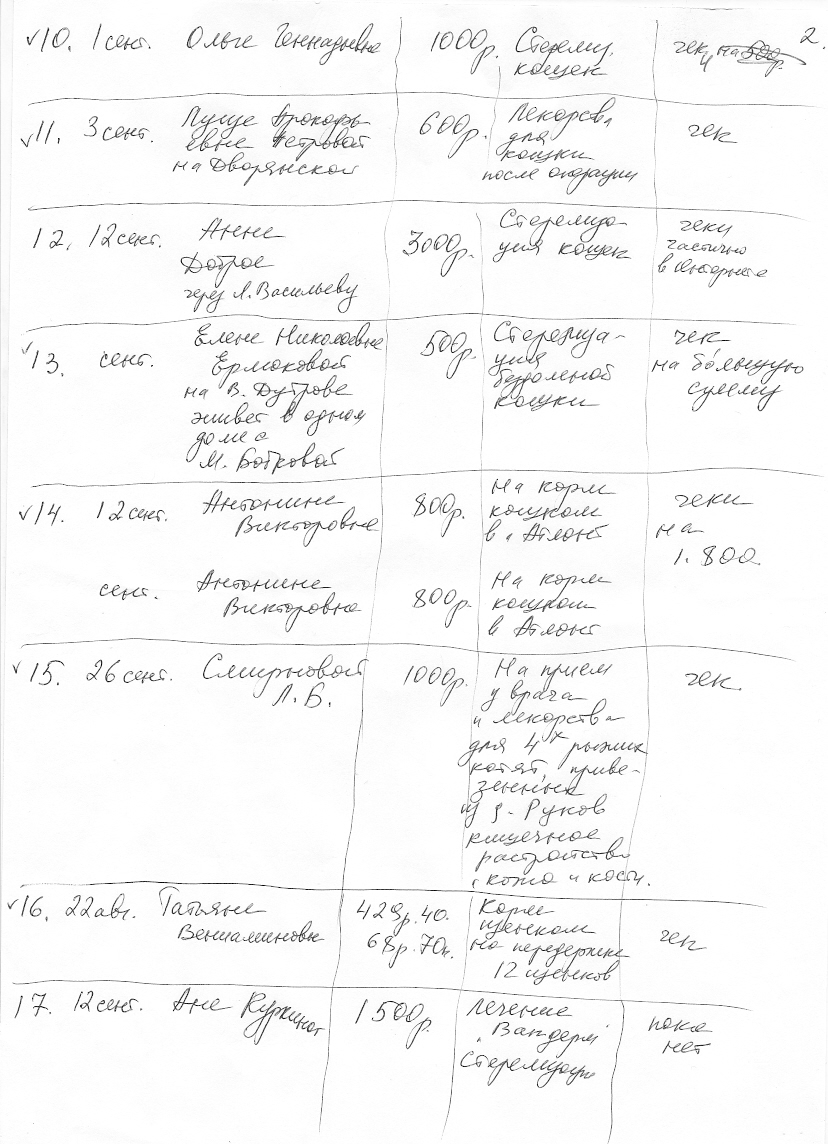 2.
√10. 1 сент. Ольге Геннадьевне 1000р. Стерелиз. кошек чеки на 500р.
√11. 3 сент. Луизе Прокофь
евне Петровой
на Дворянской
600р.
Лекарства
для
кошки
после операции
чек
12. 12 сент. Анне
через Л. Васильеву
3000р.
Стерелиза
ция кошек
чеки
частично
в Интернете
√13. сент. Елене Николаевне
Ермаковой
на В. Дуброве
живет в одном
доме с
М. Бобковой
500р.
Стерелиза-
ция
бездомной
кошки
чек
на бо́льшую
сумму
√14. 12 сент. Антонине
Викторовне
800р.
На корм
кошкам
в Атлант
чеки
на
1.800
сент. Антонине
Викторовне
800р.
На корм
кошкам
в Атлант
√15. 26 сент. Смирновой
Л. В.
1000р.
На прием
у врача
и лекарства
для 4х рыжих
котят, приве-
зенных
из д. Руков
кишечное
растройство
кожа и кости.
чек.
√16. 22 авг. Татьяне
Вениаминовне
429р. 40.
68р. 70к.
Корм
щенкам
на передержке
12 щенков
чек
17. 12 сент. Ане
1500р.
лечение
"Вандеры"
Стерелизация
пока
нет